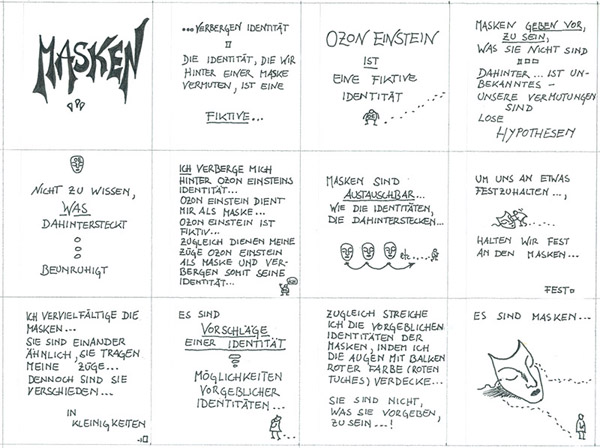 MASKEN
...VERBERGEN IDENTITÄT
DIE IDENTITÄT, DIE WIR
HINTER EINER MASKE
VERMUTEN, IST EINE
FIKTIVE...
OZON EINSTEIN
IST
EINE FIKTIVE
IDENTITÄT
MASKEN GEBEN VOR,
ZU SEIN,
WAS SIE NICHT SIND
DAHINTER... IST UN-
BEKANNTES -
UNSERE VERMUTUNGEN
SIND
LOSE
HYPOTHESEN
NICHT ZU WISSEN,
WAS
DAHINTERSTECKT
BEUNRUHIGT
ICH VERBERGE MICH
HINTER OZON EINSTEINS
IDENTITÄT...
OZON EINSTEIN DIENT
MIR ALS MASKE...
OZON EINSTEIN IST
FIKTIV...
ZUGLEICH DIENEN MEINE
ZÜGE OZON EINSTEIN
ALS MASKE UND VER-
BERGEN SOMIT SEINE
IDENTITÄT...
MASKEN SIND
AUSTAUSCHBAR...
WIE DIE IDENTITÄTEN,
DIE DAHINTERSTECKEN...
etc...
UM UNS AN ETWAS
FESTZUHALTEN...,
HALTEN WIR FEST
AN DEN MASKEN...
FEST
ICH VERVIELFÄLTIGE DIE
MASKEN...
SIE SIND EINANDER
ÄHNLICH, SIE TRAGEN
MEINE ZÜGE...
DENNOCH SIND SIE
VERSCHIEDEN...
IN
KLEINIGKEITEN
ES SIND
VORSCHLÄGE
EINER IDENTITÄT
MÖGLICHKEITEN
VORGEBLICHER
IDENTITÄTEN...
ZUGLEICH STREICHE
ICH DIE VORGEBLICHEN
IDENTITÄTEN DER
MASKEN, INDEM ICH
DIE AUGEN MIT BALKEN
ROTER FARBE (ROTEN
TUCHES) VERDECKE...
SIE SIND NICHT,
WAS SIE VORGEBEN,
ZU SEIN...!
ES SIND MASKEN...